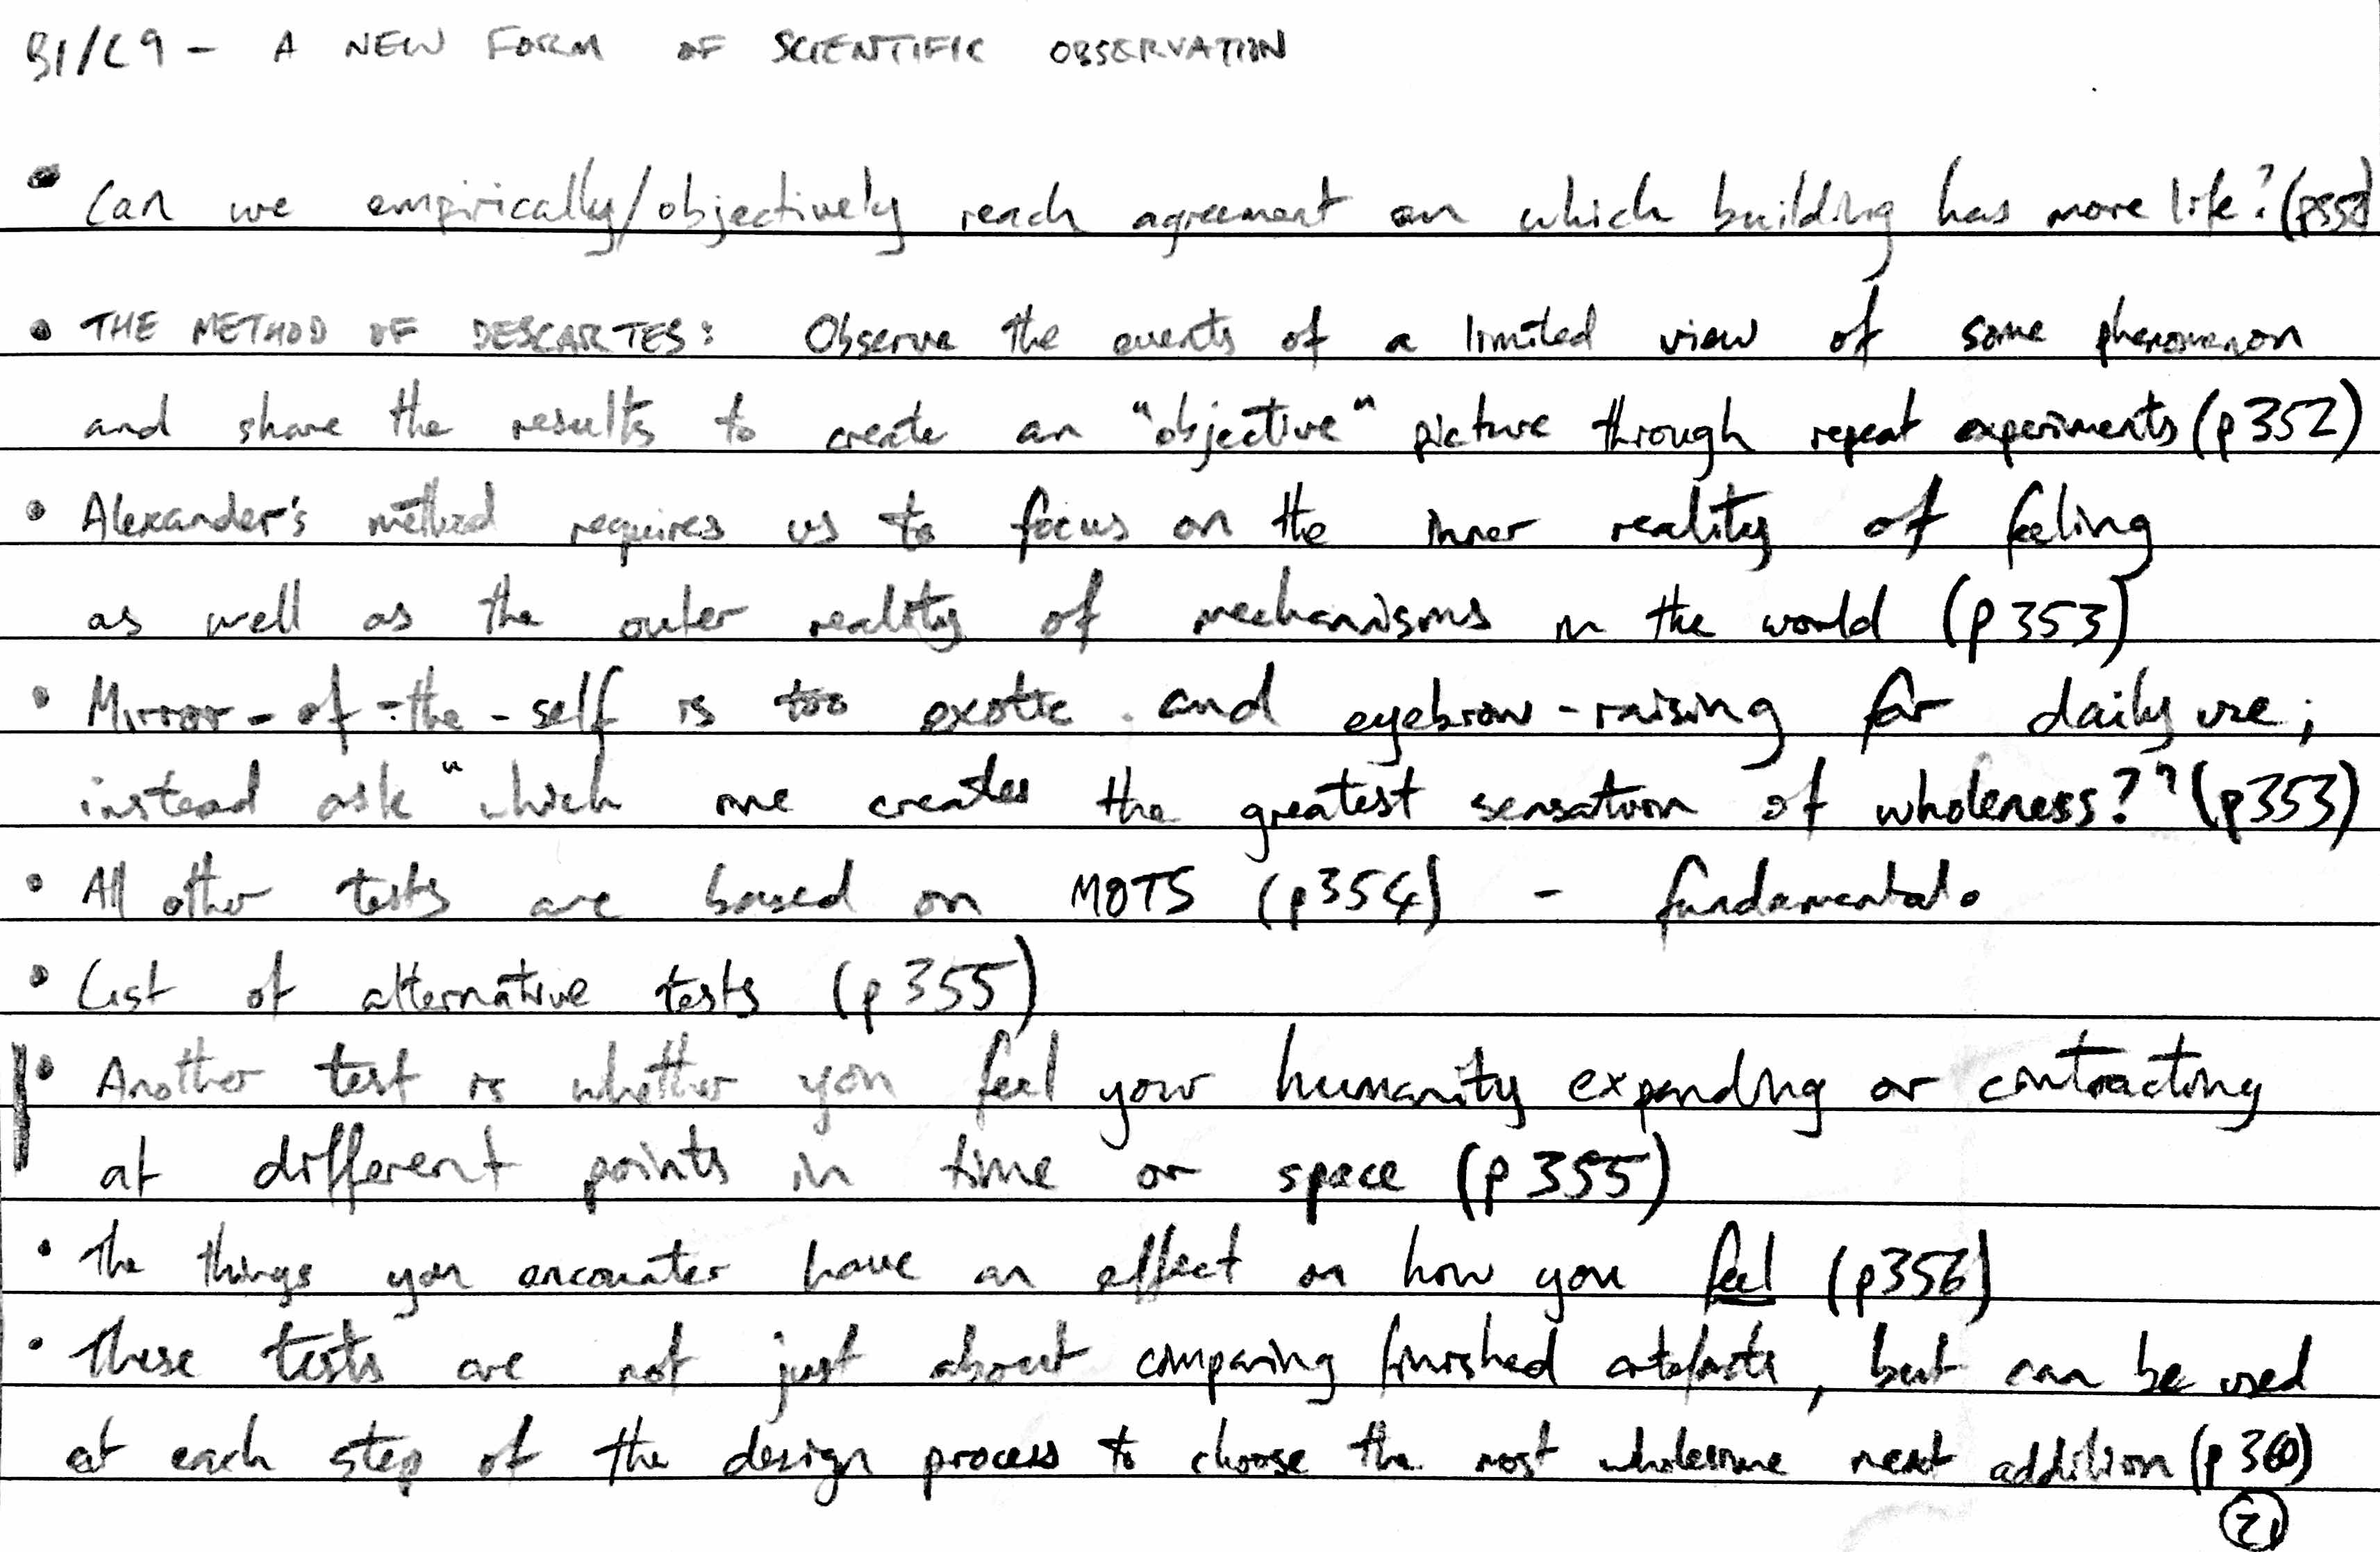 B1/C9 - A NEW FORM OF SCIENTIFIC OBSERVATION
• Can we empirically/objectively reach agreement on which building has more life?
• THE METHOD OF DESCARTES: Observe the events of a limited view of some phenomenon
and share the results to create an "objective" picture through repeat experiments (p352)
• Alexander's method requires us to focus on the inner reality of feeling
as well as the outer reality of mechanisms in the world (p353)
• Mirror-of-the-self is too exotic and eyebrow-raising for daily use;
instead ask "which one creates the greatest sensation of wholeness?" (p353)
• All other tests are based on MOTS (p354) - fundamental.
• List of alternative tests (p355)
• Another test is whether you feel your humanity expanding or contracting
at different points in time or space (p355)
• The things you encounter have an effect on how you feel (p356)
• These tests are not just about comparing finished artefacts, but can be used
at each step of the design process to choose the most wholesome next addition (p360)
21